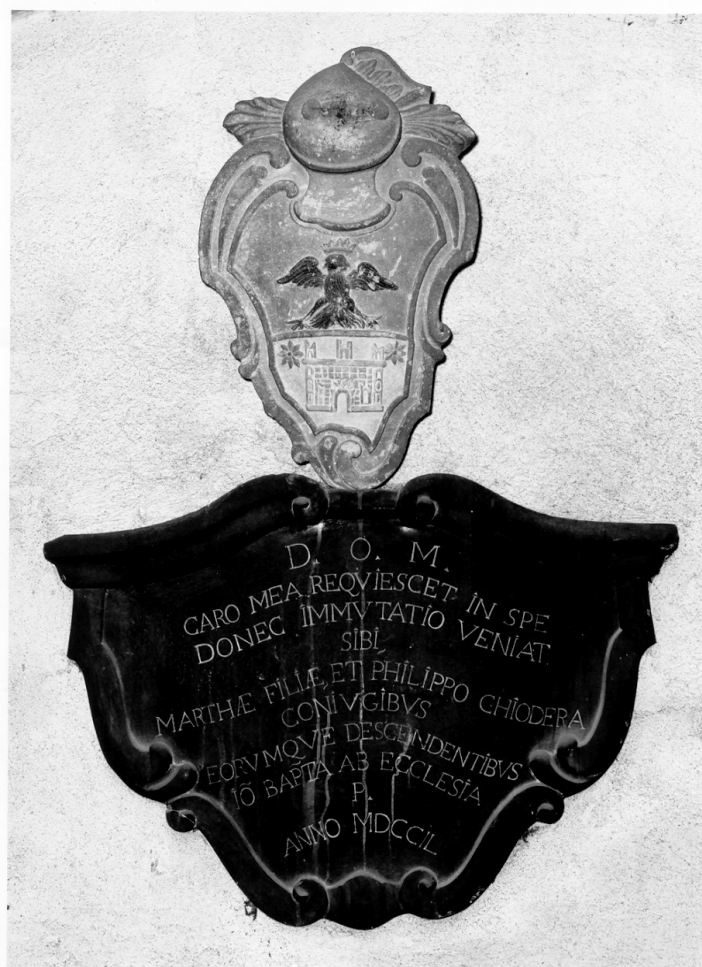 D. O. M.
CARO MEA REQVIESCET, IN SPE
DONEC IMMVTATIO VENIAT.
SIBI,
MARTHÆ FILIÆ, ET PHILIPPO CHIODERA
CONIVGIBVS
EORVMQVE DESCENDENTIBVS
IÕ BAPTÃ AB ECCLESIA
P.
ANNO MDCCIL